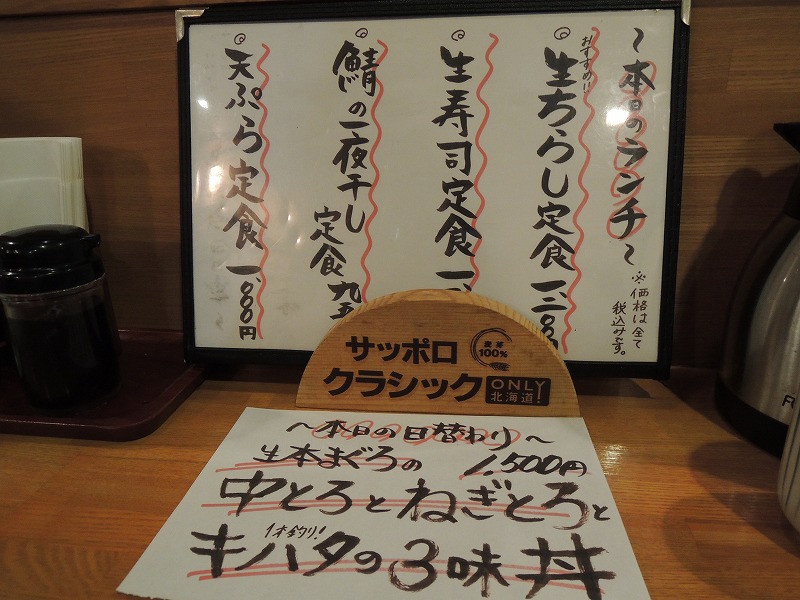 〜本日のランチ〜
※価格は全て
税込みです。
おすすめ!!
◎生ちらし定食 一、二〇〇
◎生寿司定食 一、
◎鯖の一夜干し
定食 九五
◎天ぷら定食 一、〇〇〇円
サッポロ
クラシック
麦芽
100%
ONLY
北海道!
〜本日の日替わり〜
生本まぐろの 1,500円
中とろとねぎとろと
1本釣り!
キハタの3味丼